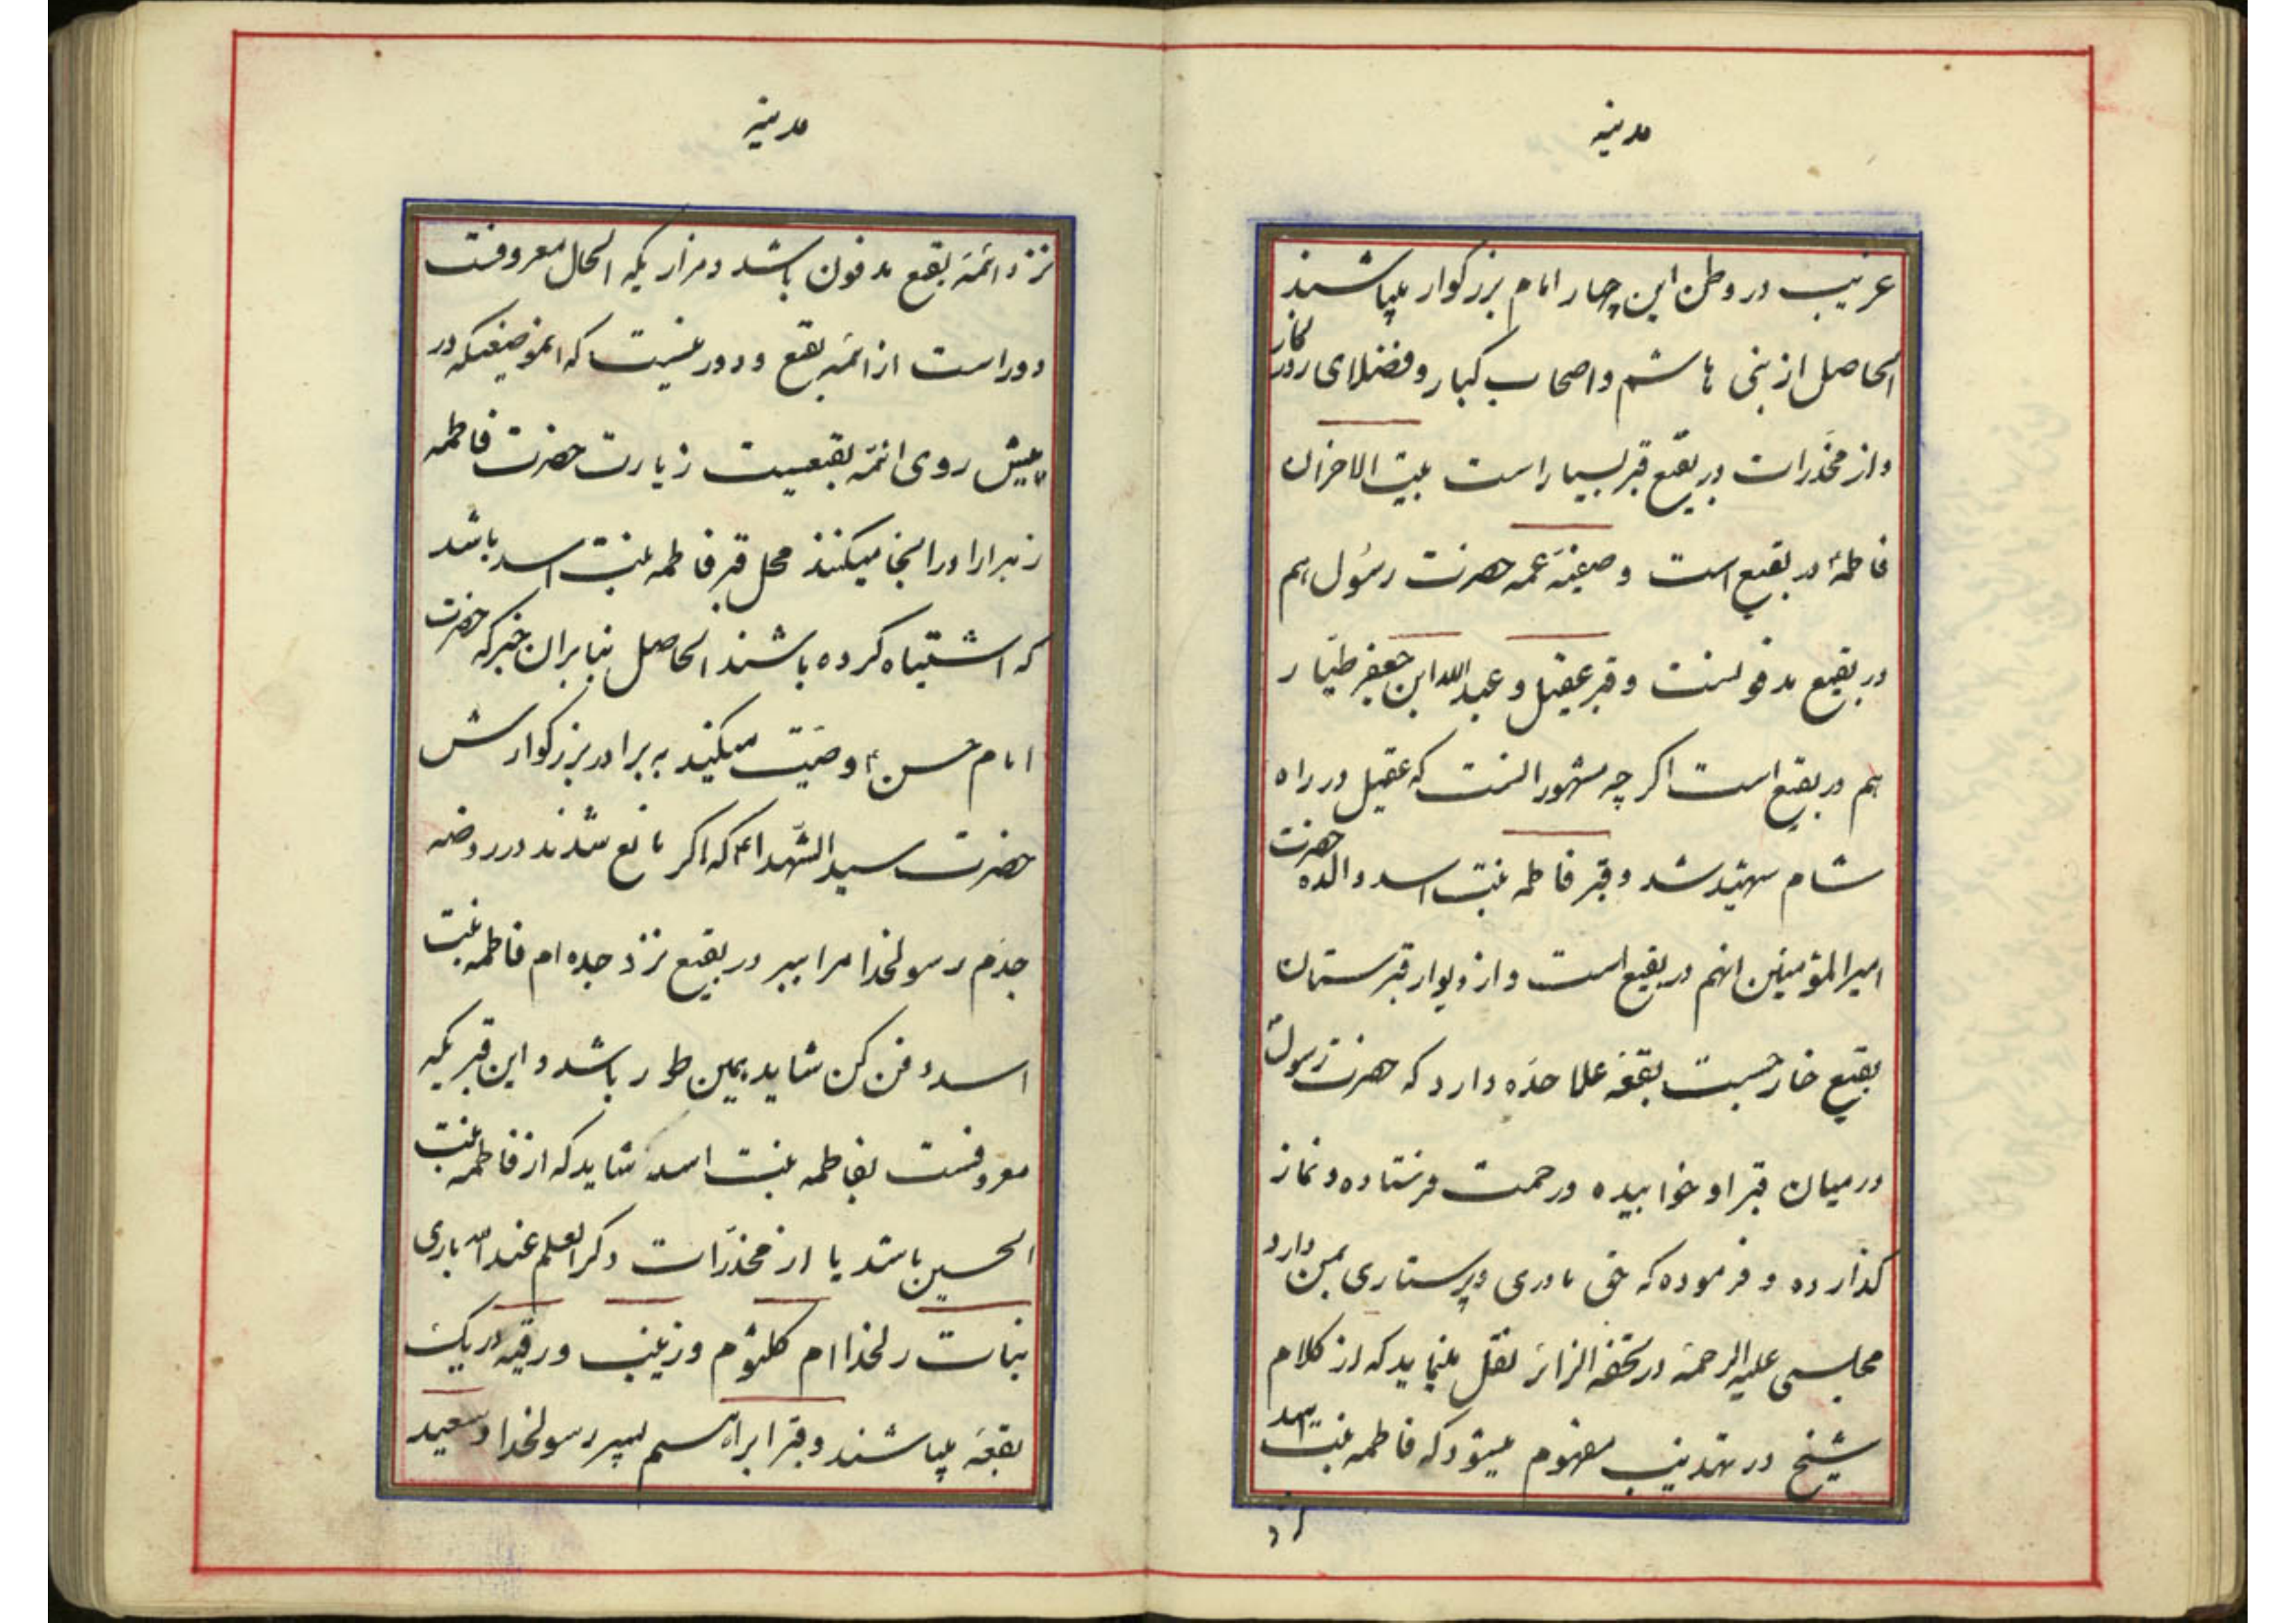 مدینه
غریب در وطن این چهار امام بزرگوار میباشند
الحاصل از بنی هاشم و اصحاب کبار و فضلای روزگار
و از مخدرات در بقیع قبر بسیار است بیت الاحزان
فاطمهٔ در بقیع است و صفیّه عمه حضرت رسول هم
در بقیع مدفونست و قبر عقیل و عبدالله ابن جعفر طیّار
هم در بقیع است اگر چه مشهور انست که عقیل در راه
شام شهید شد و قبر فاطمه بنت اسد والده حضرت
امیرالمؤمنین انهم در بقیع است و از دیوار قبرستان
بقیع خارجست بقعه علاحدّه دارد که حضرت رسول
در میان قبر او خوابیده و رحمت فرستاده و نماز
گذارده و فرموده که حق مادری و پرستاری بمن دارد
مجلسی علیه الرحمة در تحفه الزائر نقل مینماید که از کلام
شیخ در تهذیب مفهوم میشود که فاطمه بنت اسد
نزد
مدینه
نزد ائمّه بقیع مدفون باشد و مزاریکه الحال معروفست
دور است از ائمّه بقیع و دور نیست که انموضعیکه در
پیش روی ائمّه بقیعست زیارت حضرت فاطمه
زهرا را در انجا میکنند محل قبر فاطمه بنت اسد باشد
که اشتباه کرده باشند الحاصل بنابر ان خبر که حضرت
امام حسن ع وصیّت میکند به برادر بزرگوارش
حضرت سیدالشّهداء که اگر مانع شدند در روضه
جدّم رسولخدا مرا ببر در بقیع نزد جده ام فاطمه بنت
اسد دفن کن شاید بهمین طور باشد و این قبریکه
معروفست بفاطمه بنت اسد شاید که از فاطمه بنت
الحسین باشد یا از مخدّرات دکر العلم عند الله باری
بنات رلخدا ام کلثوم و زینب و رقیه در یک
بقعه میباشند و قبر ابراهیم پسر رسولخدا و سعید